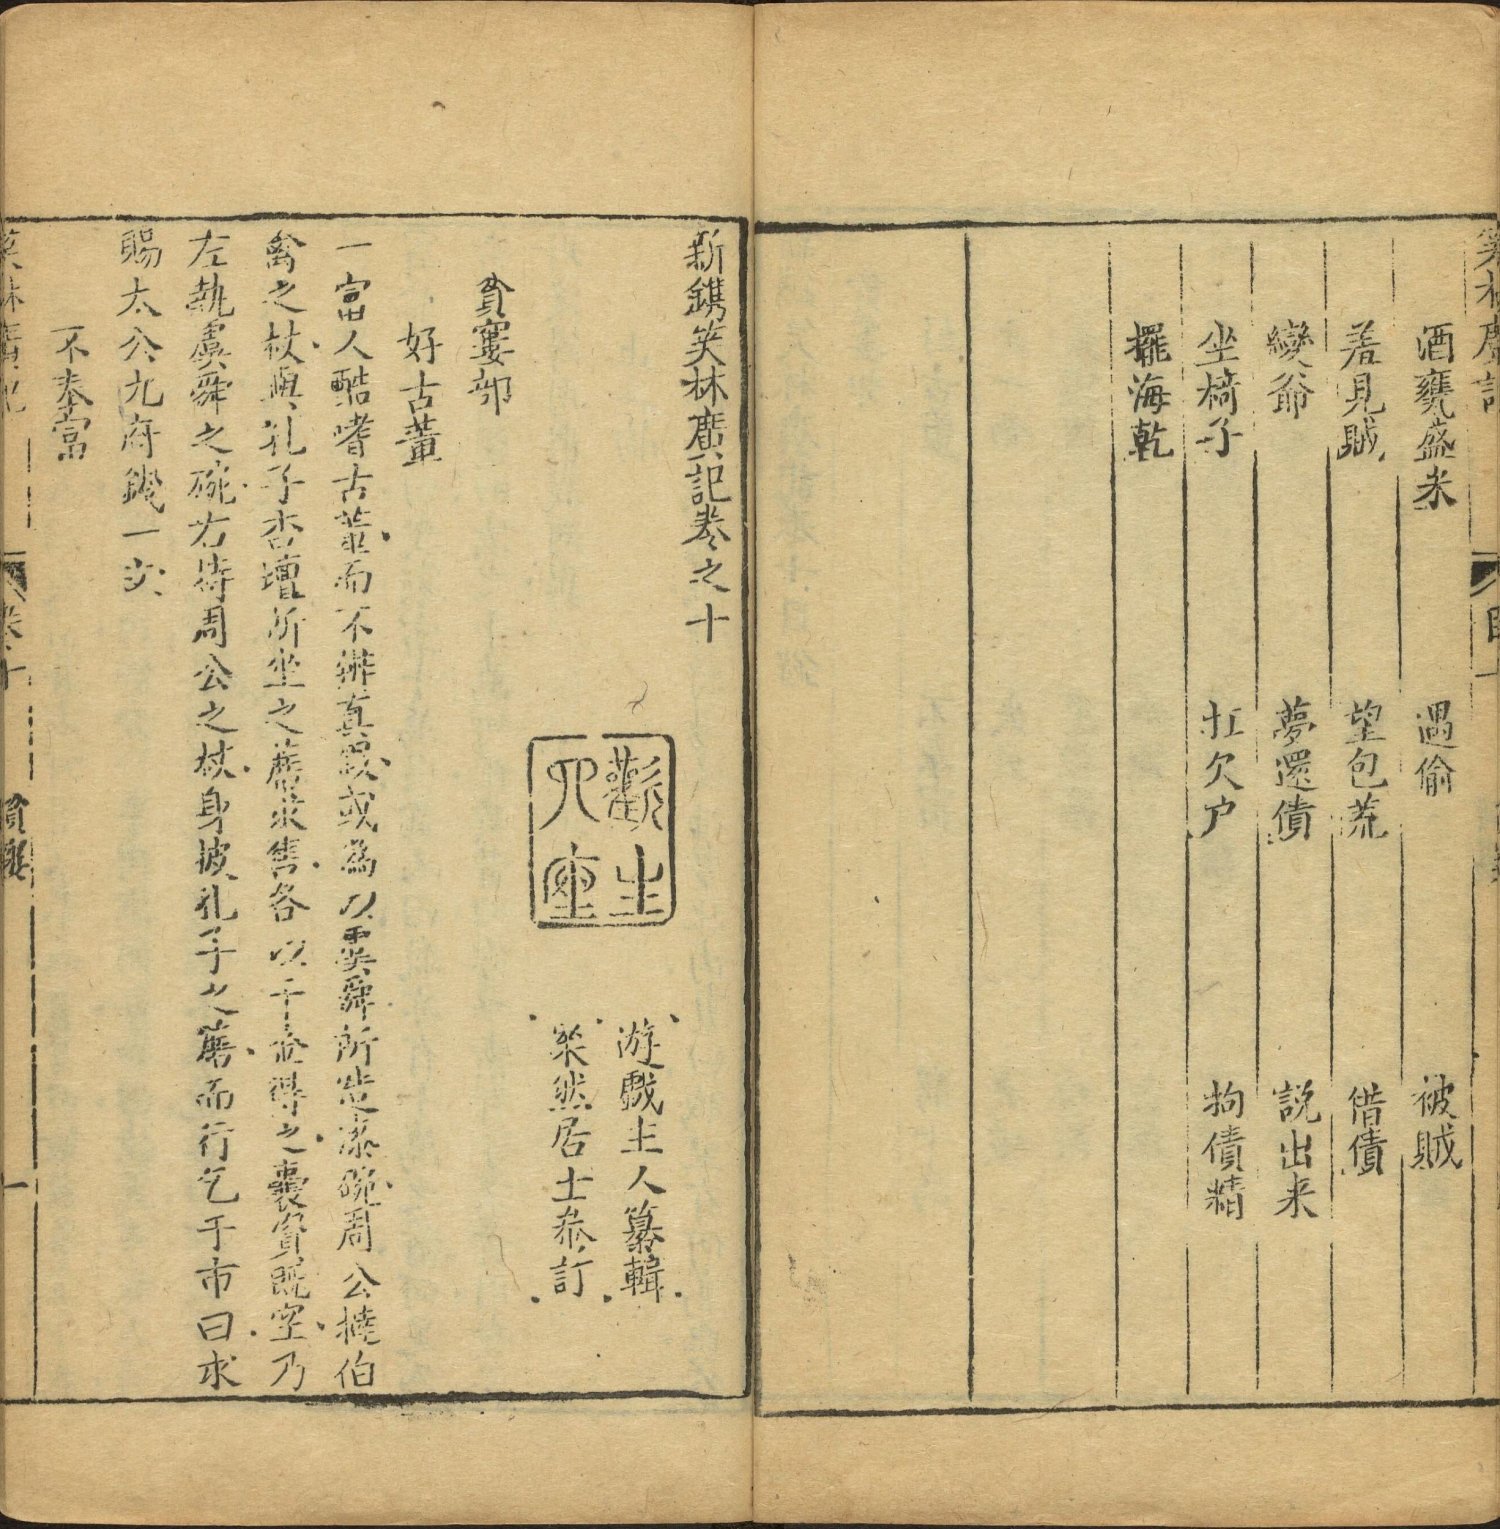 笑林廣記
酒甕盛米
遇偷
被賊
羞見賊
望包荒
借債
變爺
夢還債
説出来
坐椅子
扛欠户
拘債精
擺海乾
新鐫笑林廣記卷之十
游戲主人纂輯
粲然居士叅訂
貧窶部
好古董
一富人酷嗜古董而不辨真假或為以虞舜所造漆碗周公撻伯
禽之杖與孔子杏壇所坐之蓆求售各以千金得之囊資既空乃
左執虞舜之碗右持周公之杖身披孔子之蓆而行乞于市曰求
賜太公九府錢一文
不奉富
笑林廣記
卷十
貧窶
一